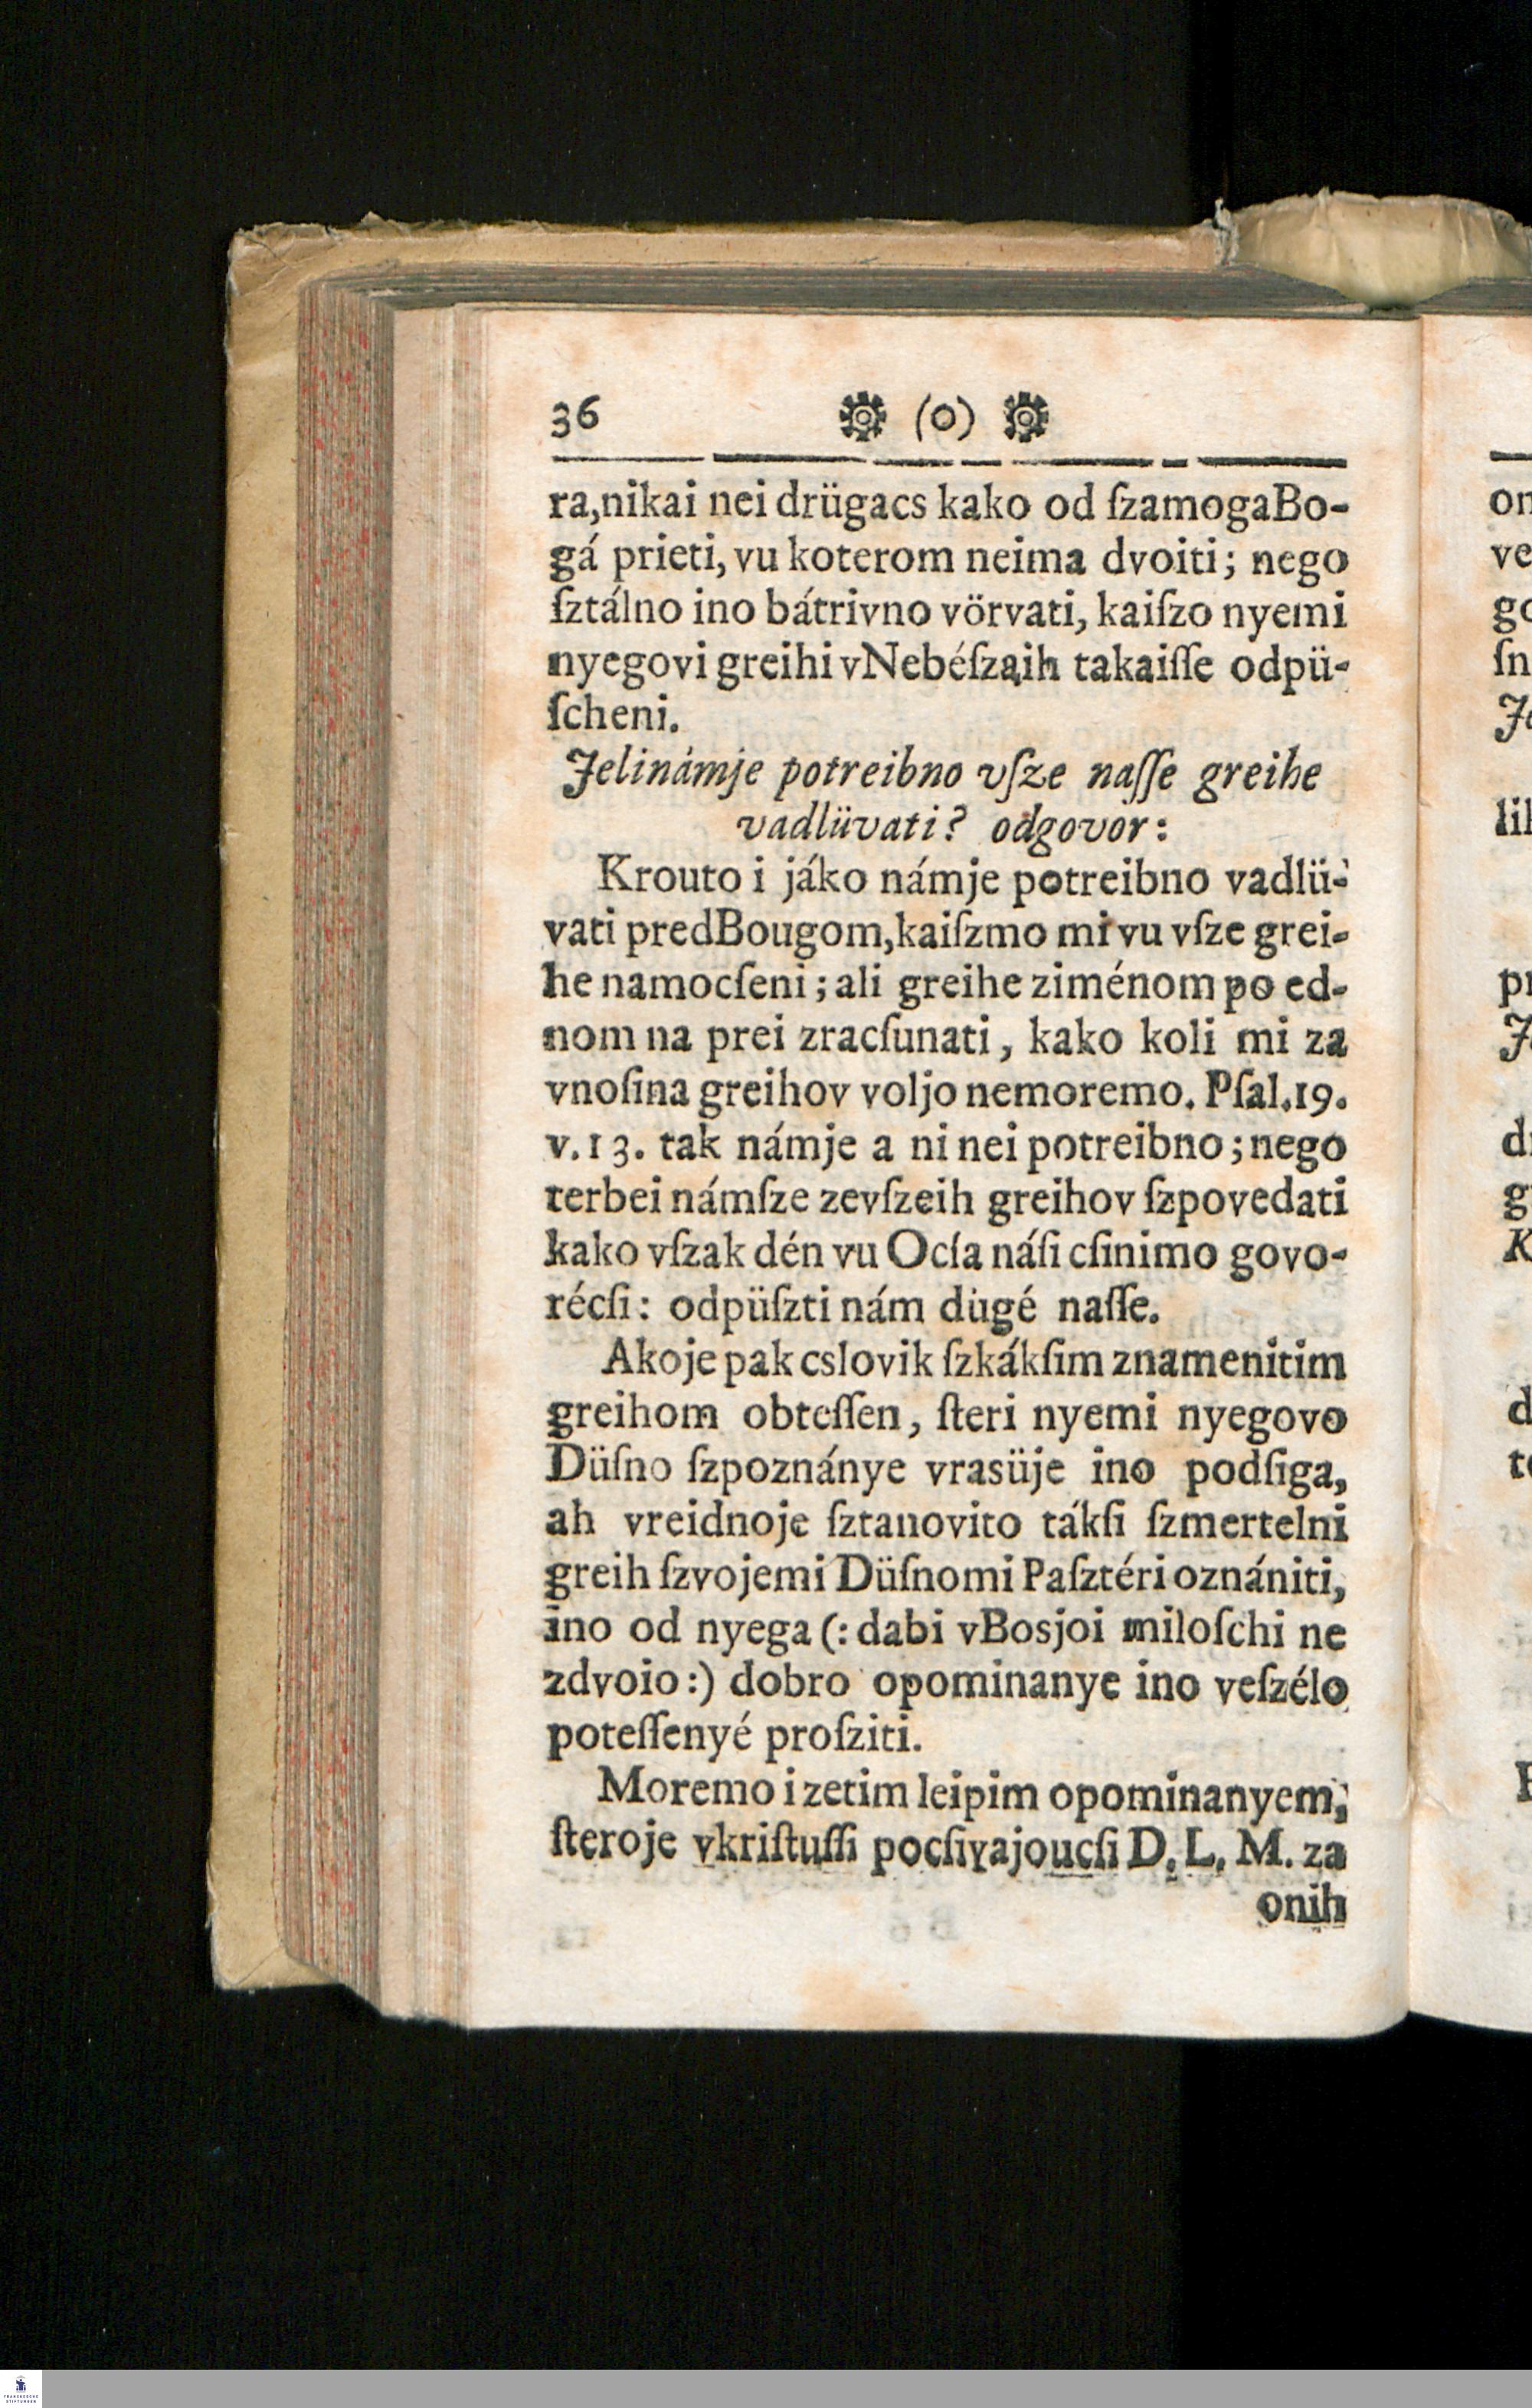 36 (o)
ra,nikai nei drügacs kako od ſzamogaBo-
gá prieti, vu koterom neima dvoiti; nego
ſztálno ino bátrivno vörvati, kaiſzo nyemi
nyegovi greihi vNebéſzaih takaiſſe odpü-
ſcheni.
Jelinámje potreibno vſze naſſe greihe
vadlüvati? odgovor:
Krouto i jáko námje potreibno vadlü-
vati predBougom,kaiſzmo mi vu vſze grei-
he namocſeni; ali greihe ziménom po ed-
nom na prei zracſunati, kako koli mi za
vnoſina greihov voljo nemoremo. Pſal.19.
v.13. tak námje a ni nei potreibno; nego
terbei námſze zevſzeih greihov ſzpovedati
kako vſzak dén vu Ocſa náſi cſinimo govo-
récſi: odpüſzti nám dügé naſſe.
Akoje pak cslovik ſzkákſim znamenitim
greihom obteſſen, ſteri nyemi nyegovo
Düſno ſzpoznánye vrasüje ino podſiga,
ah vreidnoje ſztanovito tákſi ſzmertelni
greih ſzvojemi Düſnomi Paſztéri oznániti,
ino od nyega (: dabi vBosjoi miloſchi ne
zdvoio:) dobro opominanye ino veſzélo
poteſſenyé proſziti.
Moremo i zetim leipim opominanyem,
ſteroje vkriſtuſſi pocſivajoucſi D. L. M. za
onih